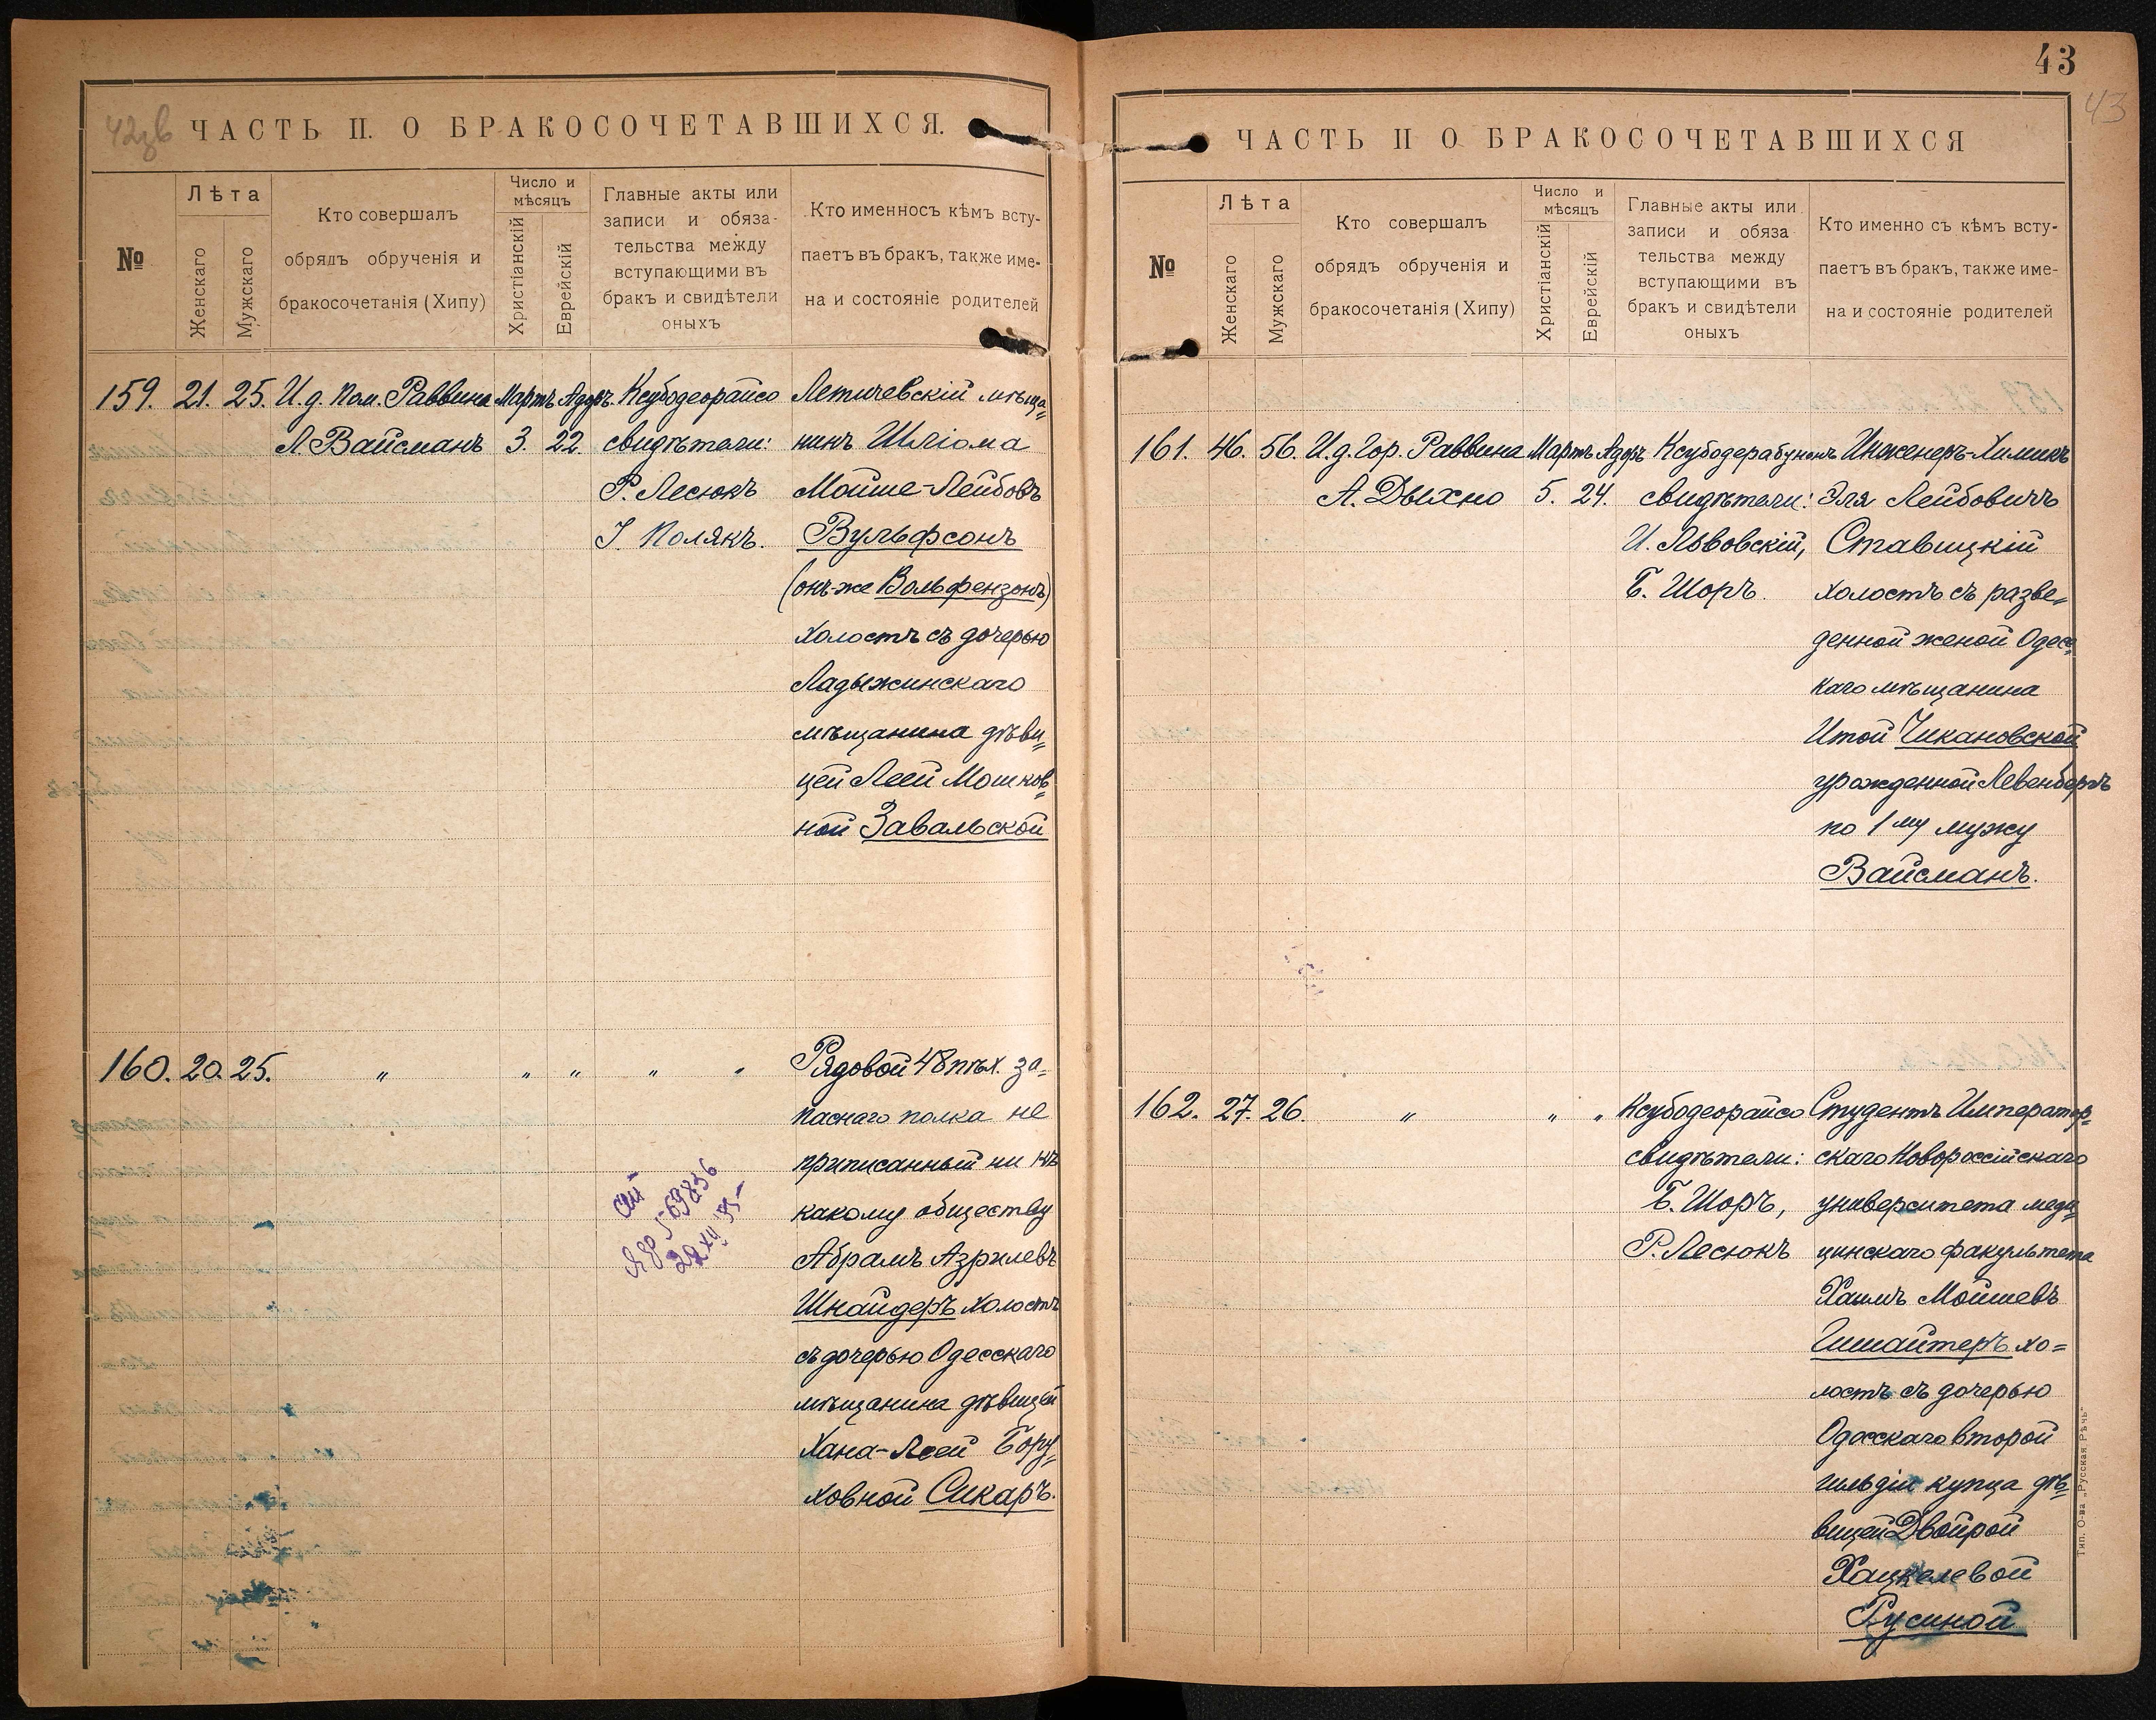 42зв
ЧАСТЬ II. О БРАКОСОЧЕТАВШИХСЯ.
№
Лѣта
Женскаго
Мужскаго
Кто совершалъ
обрядъ обрученія и
бракосочетанія (Хипу)
Число и
мѣсяцъ
Христіанскій
Еврейскій
Главные акты или
записи и обяза-
тельства между
вступающими въ
бракъ и свидѣтели
оныхъ
Кто именносъ кѣмъ всту-
паетъ въ бракъ, также име-
на и состояніе родителей
159. 21. 25. И.д. Пом. Раввина Мартъ Адоръ. Ксубодеорайсо Летичевскій мѣща=
Л. Вайсманъ 3. 22. свидѣтели: нинъ Шліома
Р. Лесюкъ Мойше-Лейбовъ
І. Полякъ. Вульфсонъ
(онъ-же Вольфензонъ)
холостъ съ дочерью
Ладыжинскаго
мѣщанина дѣви=
цей Леей Мошков=
ной Завальской
160. 20. 25. " " " " " Рядовой 48 пѣх. за=
паснаго полка не
приписанный ни къ
какому обществу
Абрамъ Азрилевъ
Шнайдеръ холостъ
съ дочерью Одесскаго
мѣщанина дѣвицей
Хана-Леей Бору=
ховной Сикаръ.
569836
43
43
ЧАСТЬ II О БРАКОСОЧЕТАВШИХСЯ
№
Лѣта
Женскаго
Мужскаго
Кто совершалъ
обрядъ обрученія и
бракосочетанія (Хипу)
Число и
мѣсяцъ
Христіанскій
Еврейскій
Главные акты или
записи и обяза
тельства между
вступающими въ
бракъ и свидѣтели
оныхъ
Кто именно съ кѣмъ всту-
паетъ въ бракъ, также име-
на и состояніе родителей
161. 46. 56. И.д. Гор. Раввина Мартъ Адоръ Ксубодерабунонъ Инженеръ-Химикъ
А. Дыхно 5. 24. свидѣтели: Эля Лейбовичъ
И. Львовскій, Ставицкій
Б. Шоръ. холостъ съ разве=
денной женой Одес=
каго мѣщанина
Итой Чикановской
урожденной Левенбергъ
по 1му мужу
Вайсманъ.
162. 27. 26. " " " Ксубодеорайсо Студентъ Император=
свидѣтели: скаго Новороссійскаго
Б. Шоръ, университета меди=
Р. Лесюкъ цинскаго факультета
Хаимъ Мойшевъ
Гимайтеръ хо=
лостъ съ дочерью
Одесскаго второй
гильдіи купца дѣ=
вицей Двойрой
Хацкелевой
Русиной
Тип. О-ва „Русская Рѣчь"